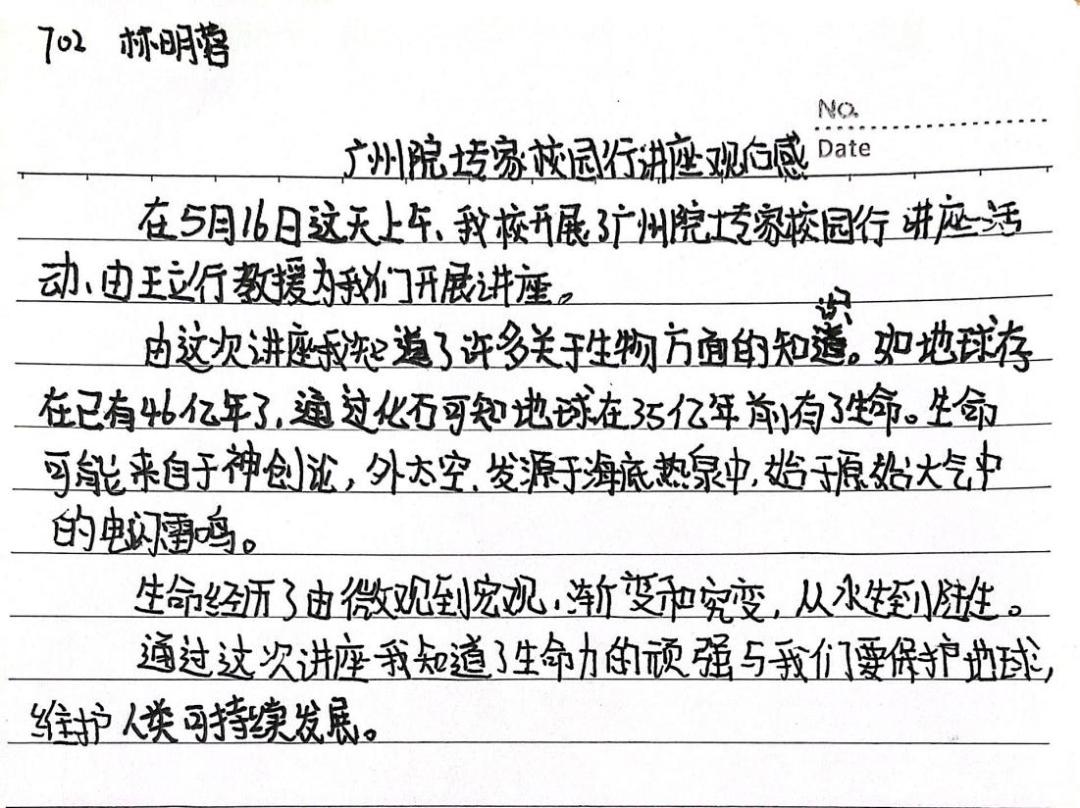 702 林明蓉
No.
广州院士专家校园行讲座观后感 Date
在5月16日这天上午、我校开展了广州院士专家校园行讲座活
动、由王立行教授为我们开展讲座。
由这次讲座我知道了许多关于生物方面的知识。如地球存
在已有46亿年了,通过化石可知地球在35亿年前有了生命。生命
可能来自于神创论,外太空、发源于海底热泉中,始于原始大气中
的电闪雷鸣。
生命经历了由微观到宏观,渐变和突变,从水生到陆生。
通过这次讲座我知道了生命力的顽强与我们要保护地球,
维护人类可持续发展。